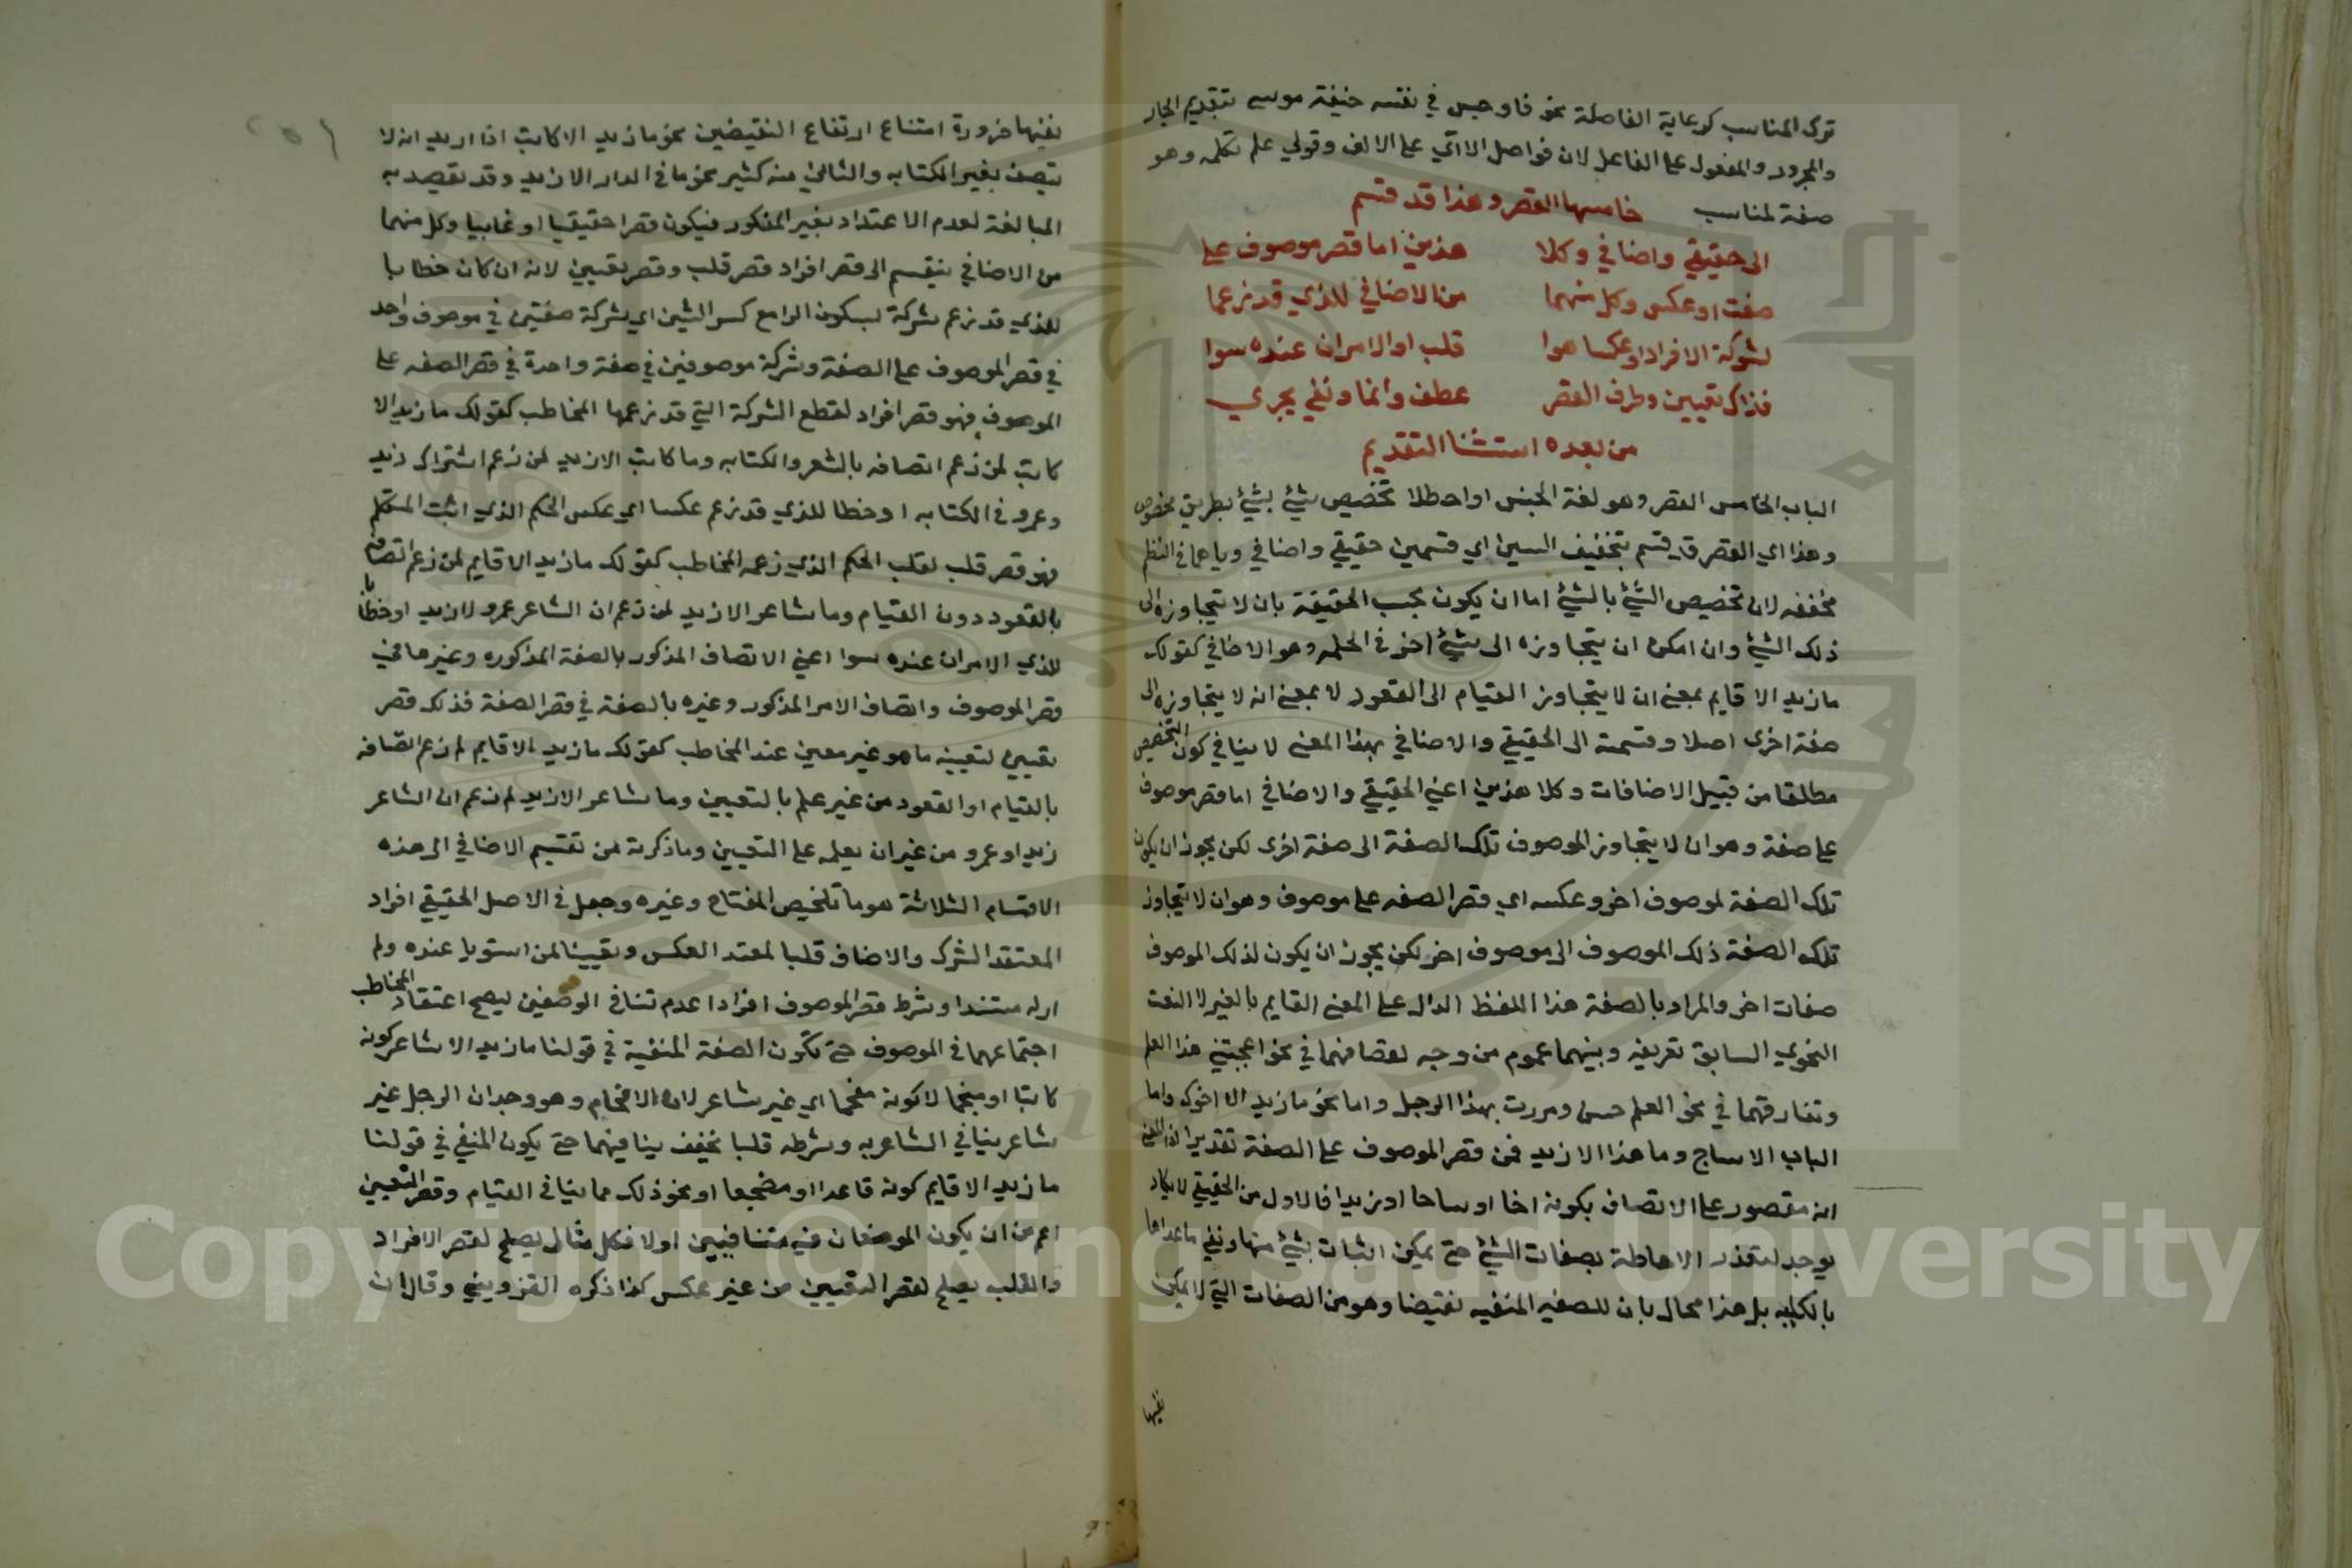 ترك المناسب كرعاية الفاصلة نحو فاوجس في نفسه خيفة موسى بتقديم الجار
والمجرور والمفعول على الفاعل لان فواصل الاتي على الالف وقولي علم تكلمه وهو
صفة لمناسب خامسها القصر وهذا قد قسم
الى حقيقي واضافي وكلا هذين اما قصر موصوف على
صفت او عكس وكل منهما من الاضافي للذي قد زعما
لشركة الافراد او عكسا هوا قلب او الامران عنده سوا
فذاك تعيين وطرف القصر عطف وانما ونفي يجري
من بعده استثنا التقديم
الباب الخامس القصر وهو لغة الحبس واصطلا تخصيص شيئ بشيئ بطريق مخصوص
وهذا اي القصر قد قسم بتخفيف السين اي قسمين حقيقي واضافي وياهما في النظم
مخففه لان تخصيص الشيئ بالشيئ اما ان يكون بحسب الحقيقة بان لا يتجاوزه الى
ذلك الشيئ وان امكن ان يتجاوزه الى شيئ اخر في الجمله وهو الاضافي كقولك
ما زيد الا قايم بمعنى ان لا يتجاوز القيام الى القعود لا بمعنى انه لا يتجاوزه الى
صفة اخرى اصلا وقسمته الى الحقيقي والاضافي بهذا المعنى لا ينافي كون التخصيص
مطلقا من قبيل الاضافات وكلا هذين اعني الحقيقي والاضافي اما قصر موصوف
على صفة وهو ان لا يتجاوز الموصوف تلك الصفة الى صفة اخرى لكن يجوز ان يكون
تلك الصفة لموصوف اخر وعكسه اي قصر الصفه على موصوف وهو ان لا يتجاوز
تلك الصفة ذلك الموصوف الى موصوف اخر لكن يجوز ان يكون لذلك الموصوف
صفات اخر والمراد بالصفة هذا اللفظ الدال على المعنى القايم بالغير لا النعت
النحوي السابق تعريفه وبينهما عموم من وجه لتصادقهما في نحو اعجبني هذا العلم
وتفارقهما في نحو العلم حسن ومررت بهذا الرجل واما نحو ما زيد الا اخوك واما
الباب الا ساج وما هذا الا زيد فمن قصر الموصوف على الصفة تقديرا اذ المعنى
انه مقصور على الاتصاف بكونه اخا او ساجا او زيدا فالاول من الحقيقي لا يكاد
يوجد لتعذر الاحاطة بصفات الشيئ حتى يمكن اثبات شيئ منها ونفي ما عداها
بالكليه بل هذا محال بان للصفه المنفيه نقيضا وهو من الصفات التي لا يمكن
نفيها
نفيها ضرورة امتناع ارتفاع النقيضين نحو ما زيد الا كاتب اذا اريد انه لا
يتصف بغير الكتابه والثاني منه كثير نحو ما في الدار الا زيد وقد يقصد به
المبالغة لعدم الاعتداد بغير المذكور فيكون قصرا حقيقيا ادعاييا وكل منهما
من الاضافي ينقسم الى قصر افراد قصر قلب وقصر تعيين لانه ان كان خطابا
للذي قد زعم شركة بسكون الرا مع كسر الشين اي شركة صفتين في موصوف واحد
في قصر الموصوف على الصفة وشركة موصوفين في صفة واحدة في قصر الصفه على
الموصوف فهو قصر افراد لقطع الشركة التي قد زعمها المخاطب كقولك ما زيد الا
كاتب لمن زعم اتصافه بالشعر والكتابه وما كاتب الا زيد لمن زعم اشتراك زيد
وعمرو في الكتابه او خطا للذي قد زعم عكسا اي عكس الحكم الذي اثبت المتكلم
فهو قصر قلب لقلب الحكم الذي زعمه المخاطب كقولك ما زيد الا قايم لمن زعم اتصافه
بالقعود دون القيام وما شاعر الا زيد لمن زعم ان الشاعر عمرو لا زيد او خطابا
للذي الامران عنده سوا اعني الاتصاف المذكور بالصفة المذكوره وغيرها في
قصر الموصوف واتصاف الامر المذكور وغيره بالصفة في قصر الصفة فذلك قصر
تعيين لتعيينه ما هو غير معين عند المخاطب كقولك ما زيد الا قايم لم زعم اتصافه
بالقيام او القعود من غير علم بالتعيين وما شاعر الا زيد لم زعم ان الشاعر
زيد او عمرو من غير ان يعلمه على التعيين وما ذكرته من تقسيم الاضافي الى هذه
الاقسام الثلاثة هو ما تلخيص المفتاح وغيره وجعل في الاصل الحقيقي افراد
المعتقد الشرك والاضاف قلبا لمعتد العكس وتعيينا لمن استويا عنده ولم
ار له مستندا وشرط قصر الموصوف افرادا عدم تنافي الوصفين ليصح اعتقاد المخاطب
اجتماعهما في الموصوف حتى تكون الصفة المنفية في قولنا ما زيد الا شاعر كونه
كاتبا او منجما لا كونه مفحما اي غير شاعر لان الافحام وهو وجدان الرجل غير
شاعر ينافي الشاعريه وشرطه قلبا تحقيق تنافيهما حتى يكون المنفي في قولنا
ما زيد الا قايم كونه قاعدا او مضجعا او نحو ذلك مما ينافي القيام وقصر التعيين
اعم من ان يكون الموصفان فيه متنافيين اولا فكل مثال يصلح لقصر الافراد
والقلب يصلح لقصر التعيين من غير عكس كذا ذكره القزويني وقال ان
Copyright © King Saud University